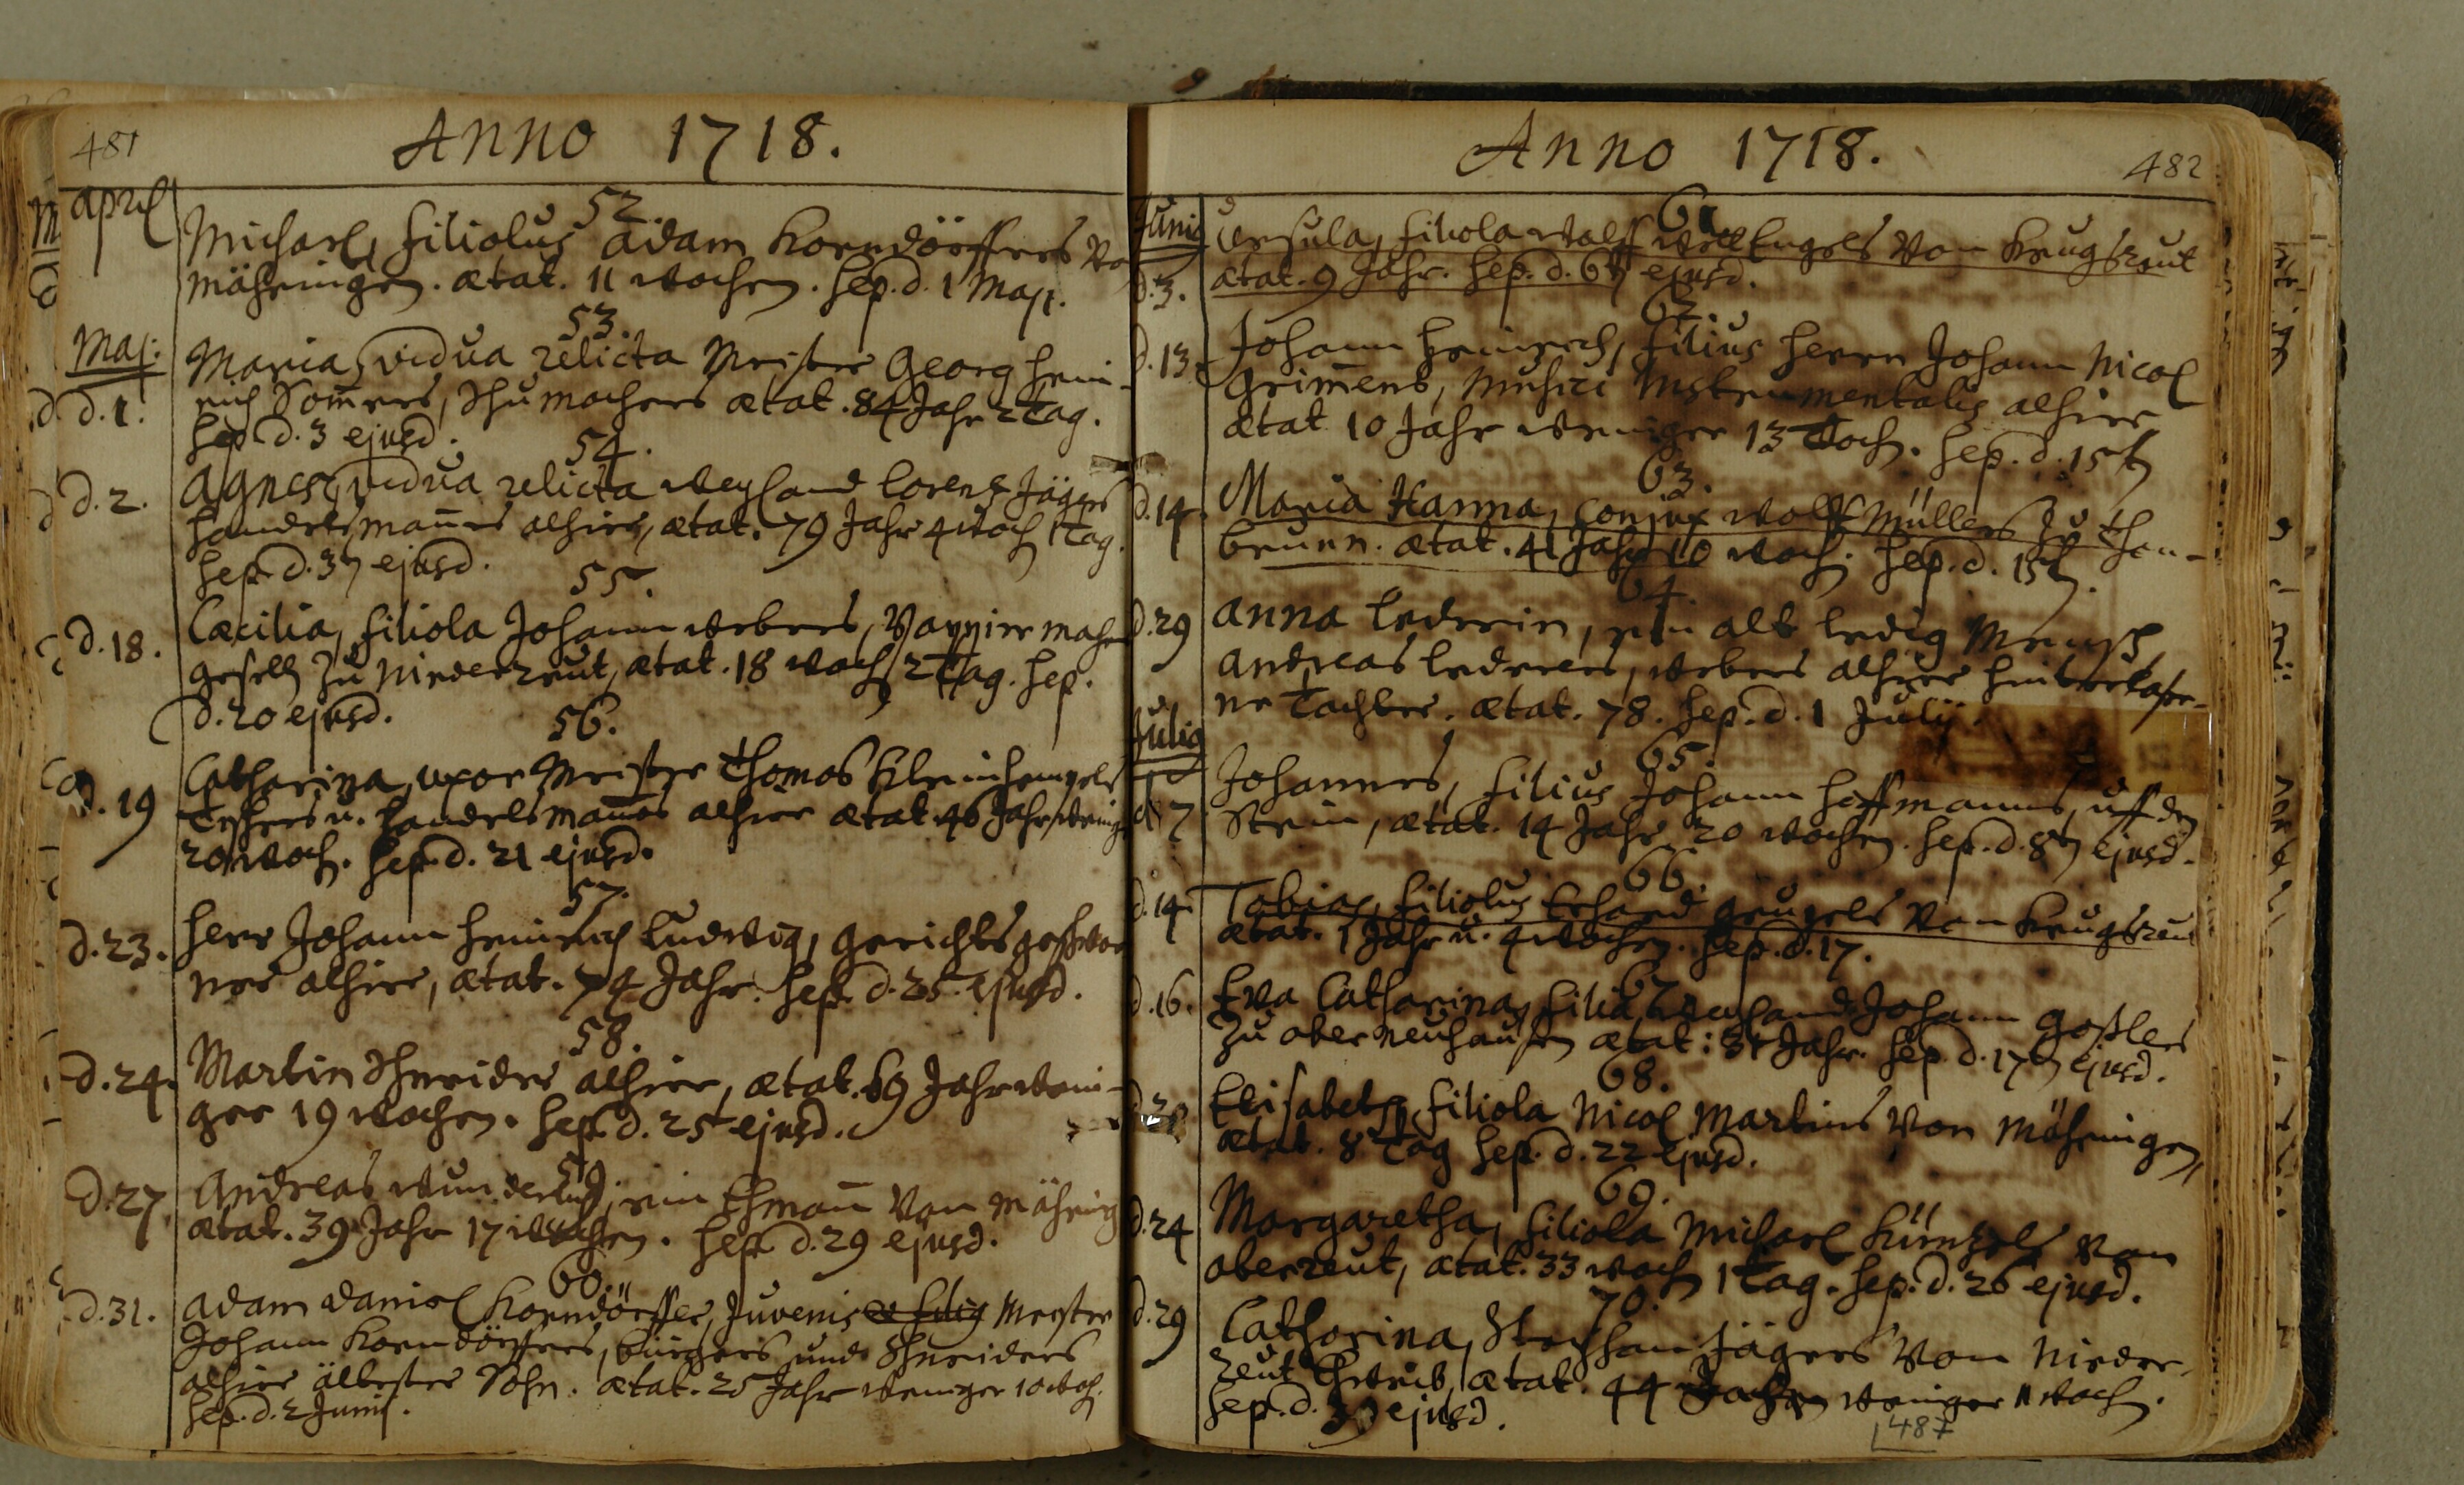 481
Anno 1718.
April
52.
Michael, filiolus Adam Korndörffers vo
Mähringen. ætat. 11 Wochen. sep. d. 1 Maji.
Maj:
53.
d. 1.
Maria, vidua relicta Meister Georg Hein-
rich Som̄ers, Schumachers ætat. 84 Jahr 2 Tag.
sep. d. 3 ejusd.
54.
d. 2.
Agnes, vidua relicta weyland Lorenz Jägers
Handelsman̄s alhier, ætat. 79 Jahr 4 Woch 1 Tag.
sep. d. 3t ejusd.
55.
d. 18.
Cæcilia, filiola Johann Webers, Pappiermacher
gesell zu Niederreut, ætat. 18 Woch 2 Tag. sep.
d. 20 ejusd.
56.
d. 19
Catharina, uxor Meister Thomas Kleinhempels
u. Handelsman̄s alhier ætat. 46 Jahr, wenig
20 Woch. sep. d. 21 ejusd.
57.
d. 23.
Herr Johann Heinrich Ludwig, Gerichtsgeschwor
ner alhier, ætat. 74 Jahr. sep. d. 25. ejusd.
58.
d. 24.
Martin Schneider alhier, ætat. 69 Jahr weni-
ger 19 Wochen. sep. d. 25 ejusd.
59.
d. 27
Andreas Wunderlich, ein Ehman̄ von Mähring
ætat. 39 Jahr 17 Wochen. sep. d. 29 ejusd.
60.
d. 31.
Adam Daniel Korndörffer, Juvenis et filius Meister
Johann Korndörffers, Bürgers und Schneiders
alhier ältester Sohn. ætat. 25 Jahr weniger 10 Woch.
sep. d. 2 Junij.
Anno 1718.
482
Junij
61.
d. 3.
Ursula, filiola Wolff Engels von Krugsreut
ætat. 9 Jahr. sep. d. 6t ejusd.
62.
d. 13.
Johann Heinrich, filius Herrn Johann Nicol
Grim̄ens, Musici Instrumentalis alhier
ætat 10 Jahr weniger 13 Woch. sep. d. 15t
63.
d. 14.
Maria Hanna, conjux Wolff Müllers zu Thon-
brunn. ætat. 41 Jahr 10 Woch. sep. d. 15t.
64.
d. 29
Anna Lederin, ein alt ledig Mensch
Andreas Lederers, Webers alhier hinterlaße-
ne Tochter. ætat. 78. sep. d. 1 Julij.
Julij
65.
d. 7
Johannes, filius Johann Hoffmanns, uff den
Stein, ætat. 14 Jahr 20 Wochen. sep. d. 8t ejusd.
66.
d. 14.
Tobias, filiolus Erhard Geugels von Krugsreut
ætat. 1 Jahr u. 4 Wochen. sep. d. 17.
67.
d. 16.
Eva Catharina, filia weyland Johann Goßlers
zu Oberneuhausen ætat: 31 Jahr. sep. d. 17t ejusd.
68.
Elisabeth filiola Nicol Martins von Mähringen,
ætat. 8 Tag sep. d. 22 ejusd.
69.
d. 24
Margaretha, filiola Michael Küntzels von
Oberreut, ætat. 33 Woch 1 Tag. sep. d. 26 ejusd.
70.
d. 29
Catharina, Stephan Jägers von Nieder-
reut Eheweib, ætat. 44 weniger 11 Woch.
sep. d. ejusd.
487